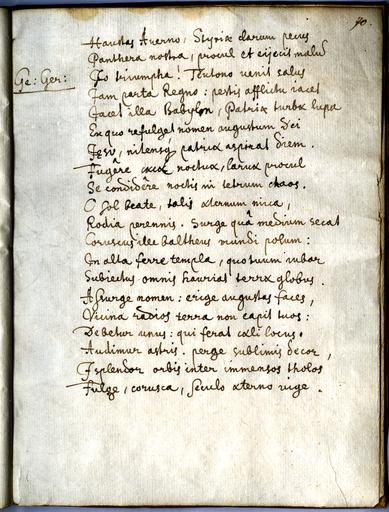 40.
Haustas Averno, Styriæ clarum pecus
Panthera nostra, procul et eijecit malū
Ge: Ger: Io triumpha! Teutono venit salus
Jam parta Regno: pestis afflicta iacet
Jacet illa Babylon, Patriæ turbæ lupa
Ex quo refulget nomen augustum Dei
Jesv, nitensq patriæ aspirat diem.
Fugêre cæcæ noctuæ, larvæ procul
Se condidêre noctis in tetrum chaos.
O Sol beate, talis æternum mica,
Rodia perennis. Surge quâ medium secat
Coruscus ille baltheus mundi polum:
In alta ferre templa, quo tuum iubar
Subiectus omnis hauriat terræ globus.
Assurge nomen: erige augustas faces,
Vicina radios terra non capit tuos:
Debetur unus: qui ferat cæli locus.
Audimur astris. perge sublimis decor,
Splendor orbis inter immensos tholos
Fulge, corusca, sæculo æterno vige.